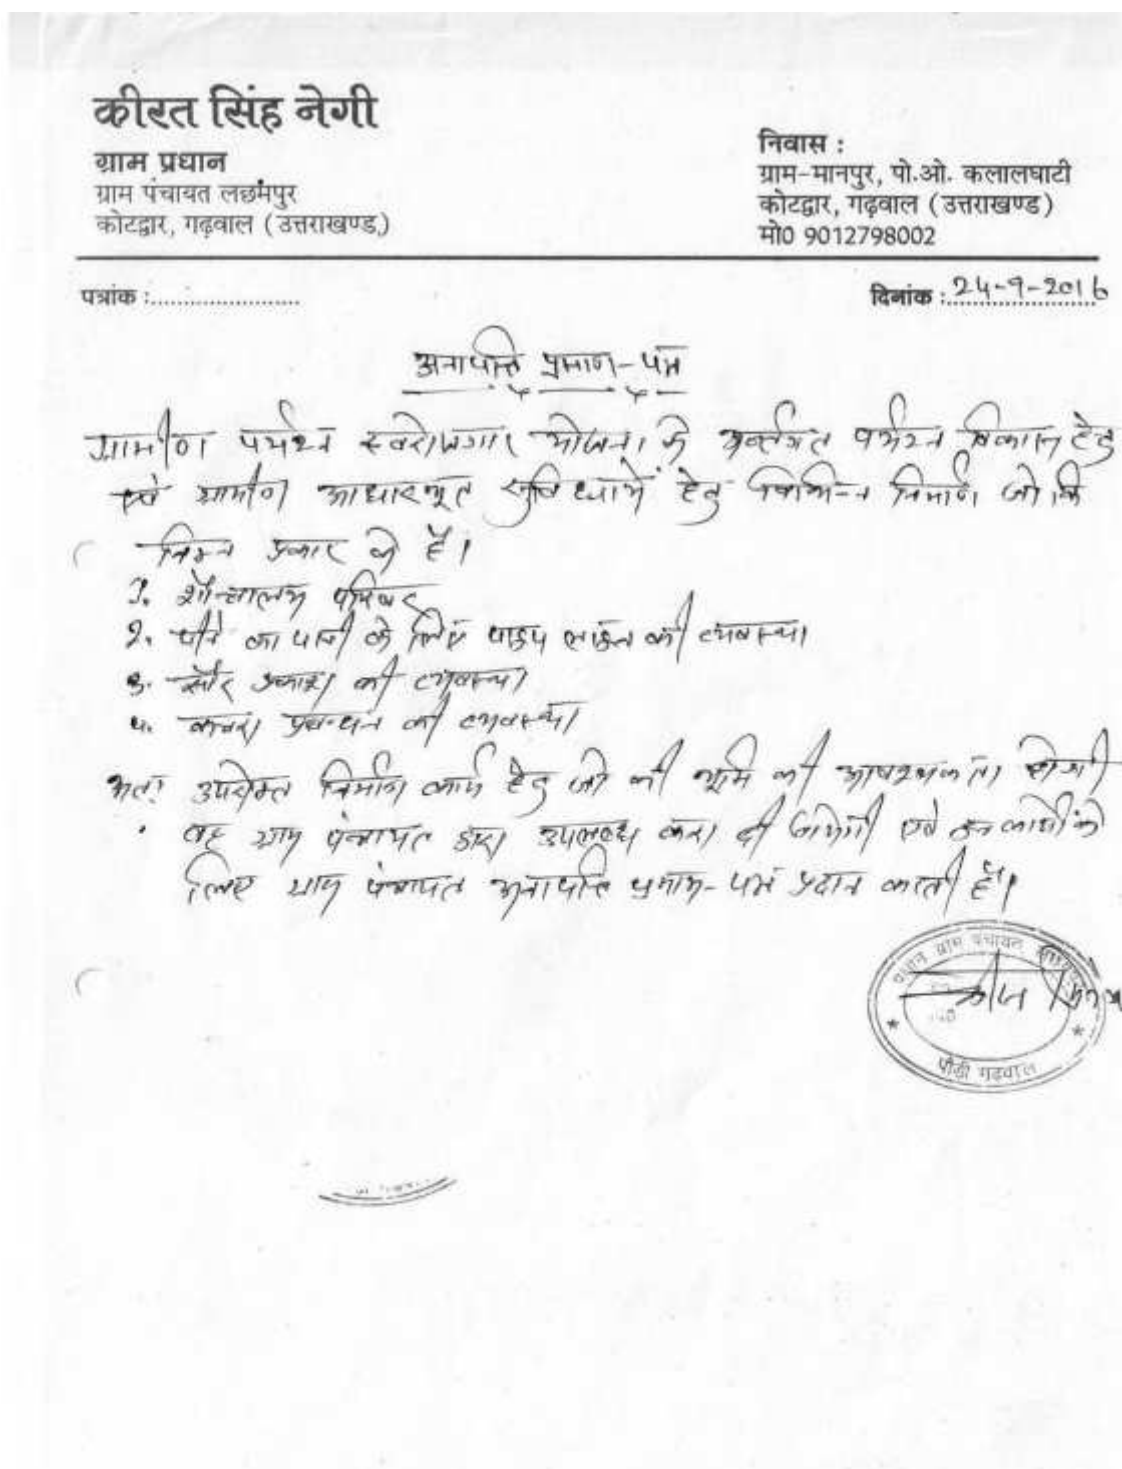 कीरत सिंह नेगी
ग्राम प्रधान
ग्राम पंचायत लछमपुर
कोटद्वार, गढ़वाल (उत्तराखण्ड)
निवास :
ग्राम-मानपुर, पो.ओ. कलालघाटी
कोटद्वार, गढ़वाल (उत्तराखण्ड)
मो0 9012798002
पत्रांक :......................
दिनांक : 24-9-2016
अनापत्ति प्रमाण-पत्र
ग्रामीण पर्यटन स्वरोजगार योजना के अर्न्तगत पर्यटन विकास हेतु
एवं ग्रामीण आधारभूत सुविधायें हेतु विभिन्न निर्माण जो कि
निम्न प्रकार के है।
1. शौचालय परिसर
2. पीने का पानी के लिए पाइप लाइन की व्यवस्था
3. सौर प्रकाश की व्यवस्था
4. कचरा प्रबन्धन की व्यवस्था
अतः उपरोक्त निर्माण कार्य हेतु जो की भूमि की आवश्यकता होगी
वह ग्राम पंचायत द्वारा उपलब्ध करा दी जायेगी एवं इन कार्यो के
लिए ग्राम पंचायत अनापत्ति प्रमाण-पत्र प्रदान करती है।
प्रधान ग्राम पंचायत
पौड़ी गढ़वाल